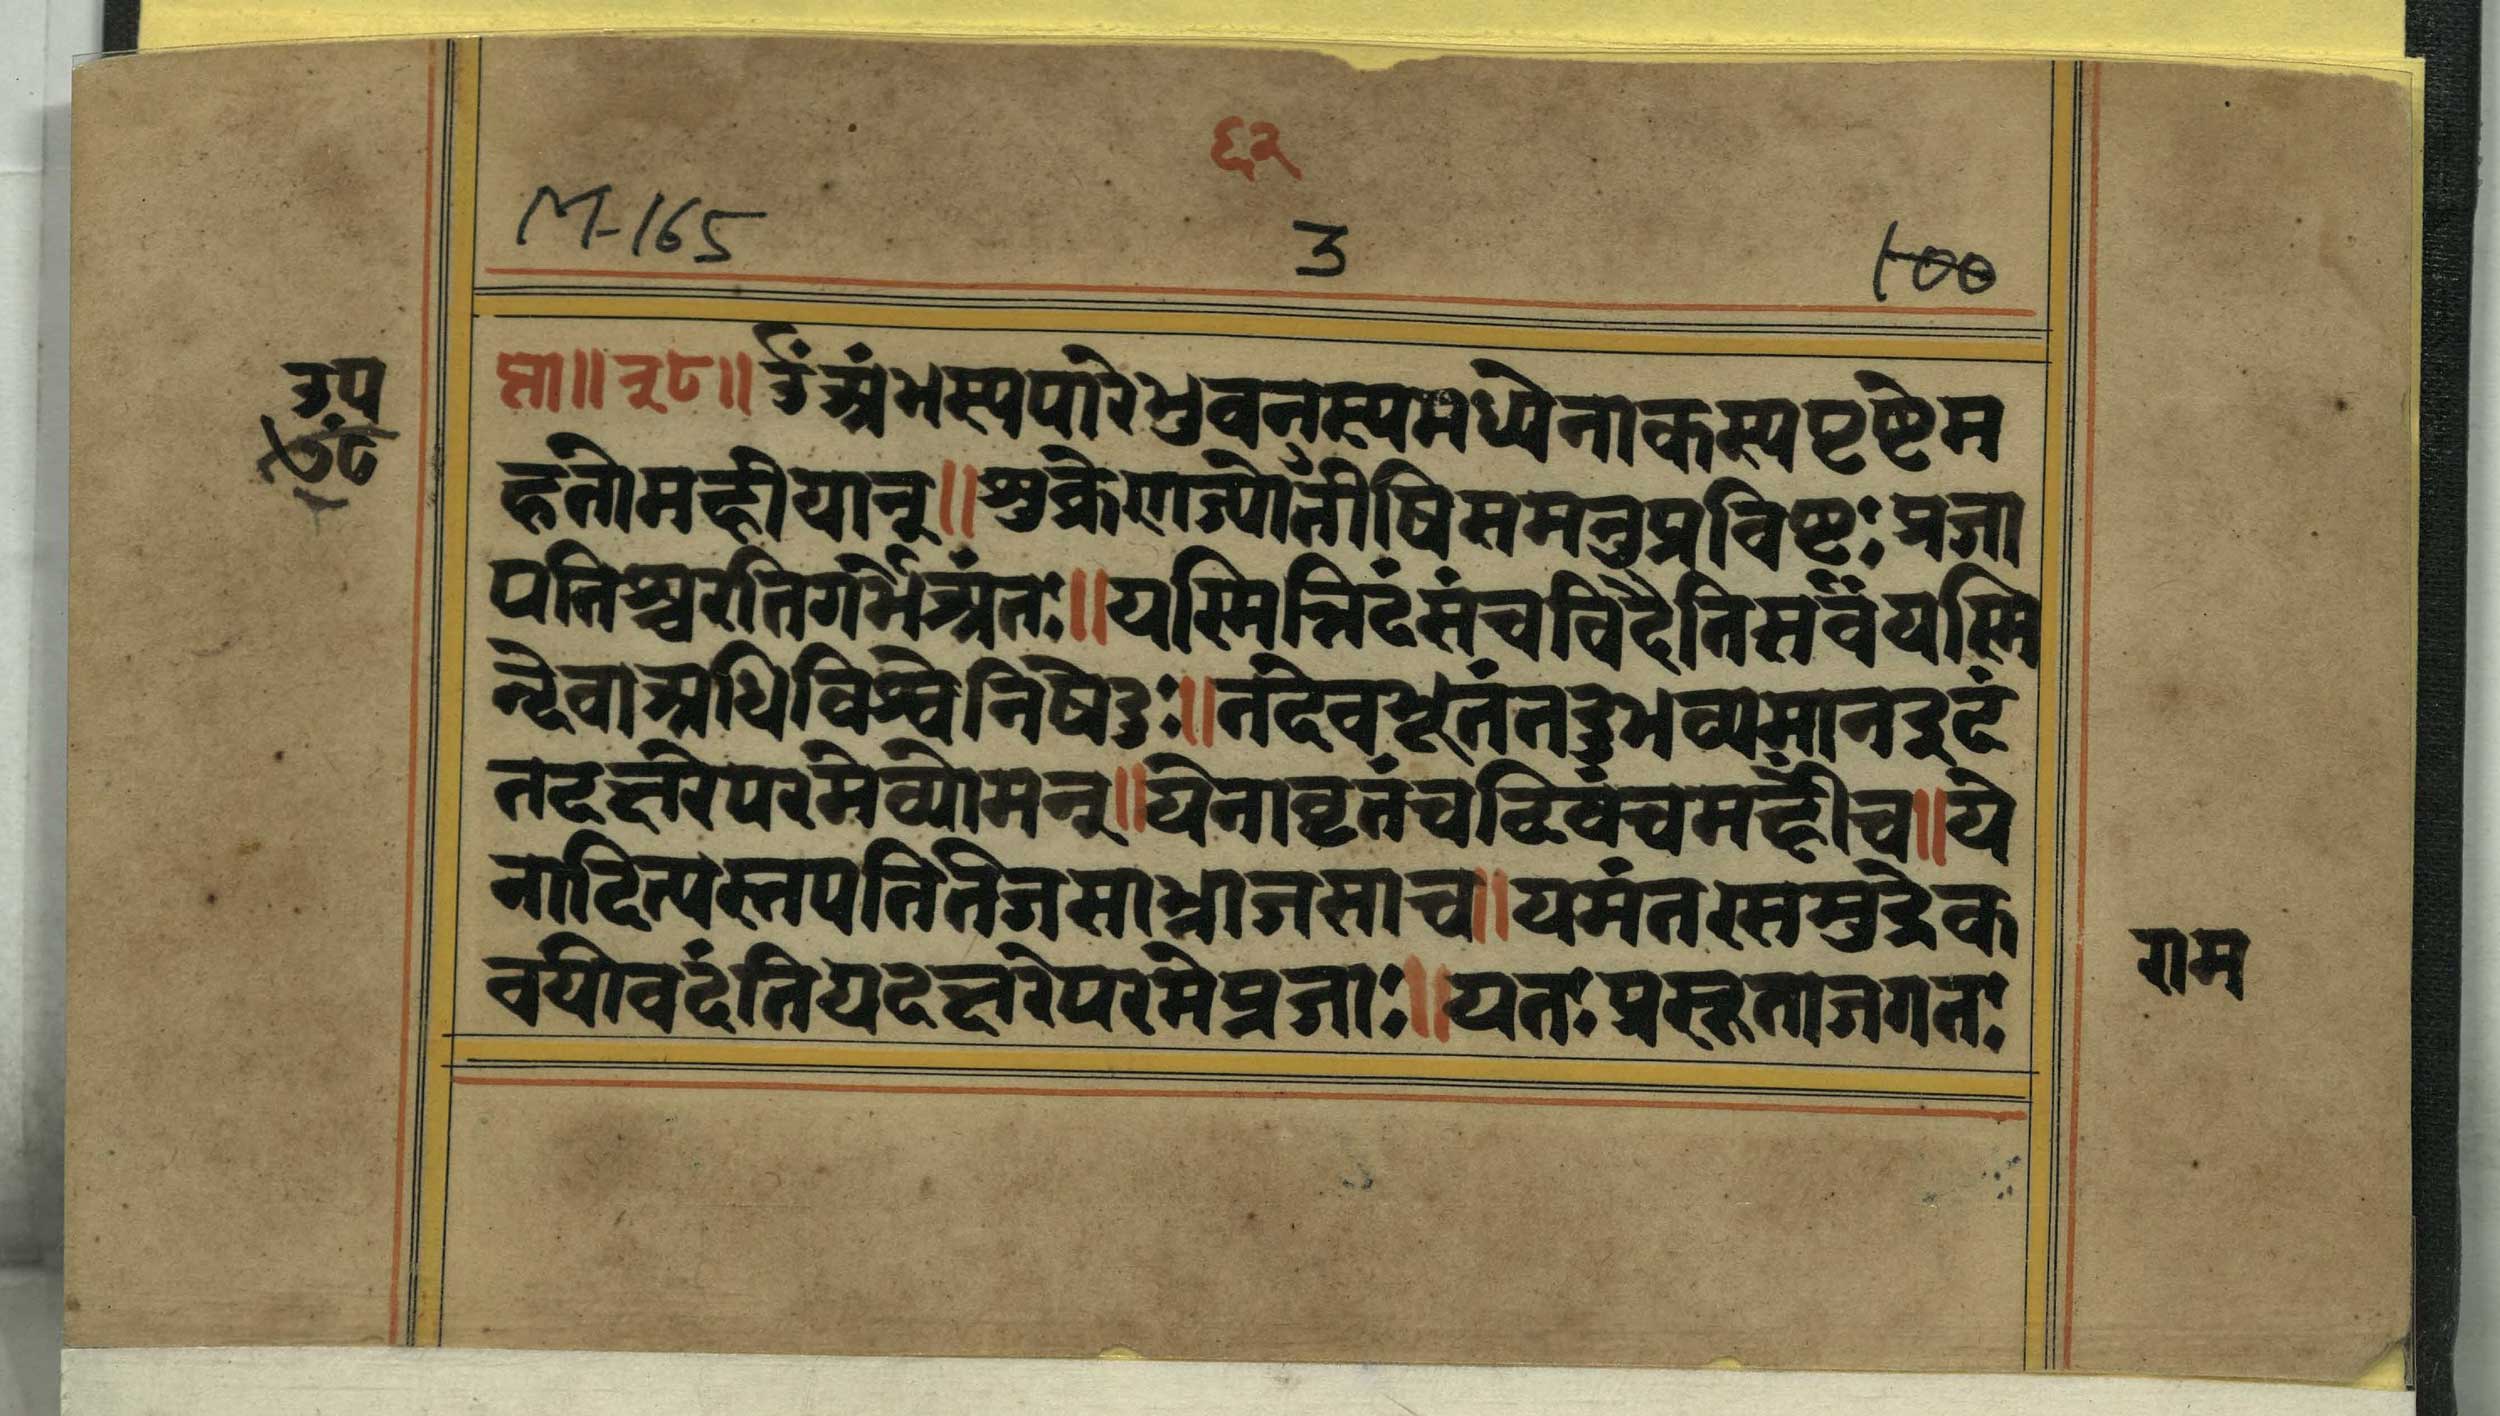 ६२
M-165
3
100
उप
प्ता॥२८॥ॐअंभस्यपारेभुवनस्यमध्येनाकस्यपृष्टेम
हतोमहीयान्॥शुक्रेणज्योतींषिसमनुप्रविष्टःप्रजा
पतिश्चरतिगर्भेअंतः॥यस्मिन्निदंसंचविदैतिसर्वंयस्मि
न्देवाअधिविश्वेनिषेदुः॥तदेवभूतंतदुभव्यमानइदं
तदक्षरेपरमेव्योमन्॥येनावृतंचदिवंचमहींच॥ये
नादित्यस्तपतितेजसाभ्राजसाच॥यमंतरसमुद्रेक
वयोवदंतियदक्षरेपरमेप्रजाः॥यतःप्रसूताजगतः
राम